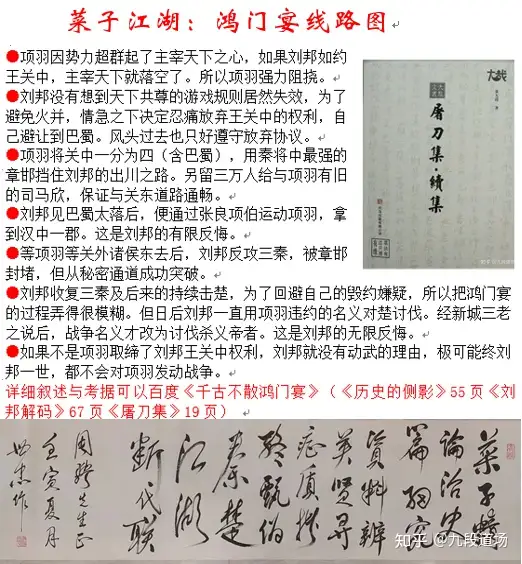 菜子江湖：鸿门宴线路图
●项羽因势力超群起了主宰天下之心，如果刘邦如约
王关中，主宰天下就落空了。所以项羽强力阻挠。
●刘邦没有想到天下共尊的游戏规则居然失效，为了
避免火并，情急之下决定忍痛放弃王关中的权利，自
己避让到巴蜀。风头过去也只好遵守放弃协议。
●项羽将关中一分为四（含巴蜀），用秦将中最强的
章邯挡住刘邦的出川之路。另留三万人给与项羽有旧
的司马欣，保证与关东道路通畅。
●刘邦见巴蜀太落后，便通过张良项伯运动项羽，拿
到汉中一郡。这是刘邦的有限反悔。
●等项羽等关外诸侯东去后，刘邦反攻三秦，被章邯
封堵，但从秘密通道成功突破。
●刘邦收复三秦及后来的持续击楚，为了回避自己的毁约嫌疑，所以把鸿门宴
的过程弄得很模糊。但日后刘邦一直用项羽违约的名义对楚讨伐。经新城三老
之说后，战争名义才改为讨伐杀义帝者。这是刘邦的无限反悔。
●如果不是项羽取缔了刘邦王关中权利，刘邦就没有动武的理由，极可能终刘
邦一世，都不会对项羽发动战争。
详细叙述与考据可以百度《千古不散鸿门宴》（《历史的侧影》55 页《刘
邦解码》67 页《屠刀集》19 页）
屠刀集·续集
菜子
论治史
篇
资料辨
英贤寻
秦楚
江湖
断代联
壬寅夏月
知乎 @九段道场